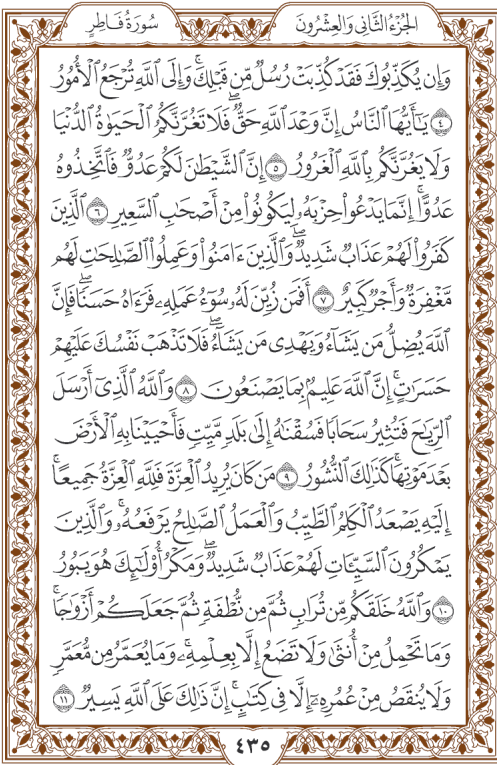 الجُزْءُ الثَّانِي وَالعِشْرُونَ
سُورَةُ فَاطِرٍ
وَإِن يُكَذِّبُوكَ فَقَدْ كُذِّبَتْ رُسُلٌ مِّن قَبْلِكَۚ وَإِلَى ٱللَّهِ تُرْجَعُ ٱلْأُمُورُ
٤ يَـٰٓأَيُّهَا ٱلنَّاسُ إِنَّ وَعْدَ ٱللَّهِ حَقٌّۖ فَلَا تَغُرَّنَّكُمُ ٱلْحَيَوٰةُ ٱلدُّنْيَا
وَلَا يَغُرَّنَّكُم بِٱللَّهِ ٱلْغَرُورُ ٥ إِنَّ ٱلشَّيْطَـٰنَ لَكُمْ عَدُوٌّ فَٱتَّخِذُوهُ
عَدُوًّاۚ إِنَّمَا يَدْعُوا۟ حِزْبَهُۥ لِيَكُونُوا۟ مِنْ أَصْحَـٰبِ ٱلسَّعِيرِ ٦ ٱلَّذِينَ
كَفَرُوا۟ لَهُمْ عَذَابٌ شَدِيدٌۖ وَٱلَّذِينَ ءَامَنُوا۟ وَعَمِلُوا۟ ٱلصَّـٰلِحَـٰتِ لَهُم
مَّغْفِرَةٌ وَأَجْرٌ كَبِيرٌ ٧ أَفَمَن زُيِّنَ لَهُۥ سُوٓءُ عَمَلِهِۦ فَرَءَاهُ حَسَنًاۖ فَإِنَّ
ٱللَّهَ يُضِلُّ مَن يَشَآءُ وَيَهْدِى مَن يَشَآءُۖ فَلَا تَذْهَبْ نَفْسُكَ عَلَيْهِمْ
حَسَرَٰتٍۚ إِنَّ ٱللَّهَ عَلِيمٌۢ بِمَا يَصْنَعُونَ ٨ وَٱللَّهُ ٱلَّذِىٓ أَرْسَلَ
ٱلرِّيَـٰحَ فَتُثِيرُ سَحَابًا فَسُقْنَـٰهُ إِلَىٰ بَلَدٍ مَّيِّتٍ فَأَحْيَيْنَا بِهِ ٱلْأَرْضَ
بَعْدَ مَوْتِهَاۚ كَذَٰلِكَ ٱلنُّشُورُ ٩ مَن كَانَ يُرِيدُ ٱلْعِزَّةَ فَلِلَّهِ ٱلْعِزَّةُ جَمِيعًاۚ
إِلَيْهِ يَصْعَدُ ٱلْكَلِمُ ٱلطَّيِّبُ وَٱلْعَمَلُ ٱلصَّـٰلِحُ يَرْفَعُهُۥۚ وَٱلَّذِينَ
يَمْكُرُونَ ٱلسَّيِّـَٔاتِ لَهُمْ عَذَابٌ شَدِيدٌۖ وَمَكْرُ أُو۟لَـٰٓئِكَ هُوَ يَبُورُ
١٠ وَٱللَّهُ خَلَقَكُم مِّن تُرَابٍ ثُمَّ مِن نُّطْفَةٍ ثُمَّ جَعَلَكُمْ أَزْوَٰجًاۚ
وَمَا تَحْمِلُ مِنْ أُنثَىٰ وَلَا تَضَعُ إِلَّا بِعِلْمِهِۦۚ وَمَا يُعَمَّرُ مِن مُّعَمَّرٍ
وَلَا يُنقَصُ مِنْ عُمُرِهِۦٓ إِلَّا فِى كِتَـٰبٍۚ إِنَّ ذَٰلِكَ عَلَى ٱللَّهِ يَسِيرٌ ١١
٤٣٥